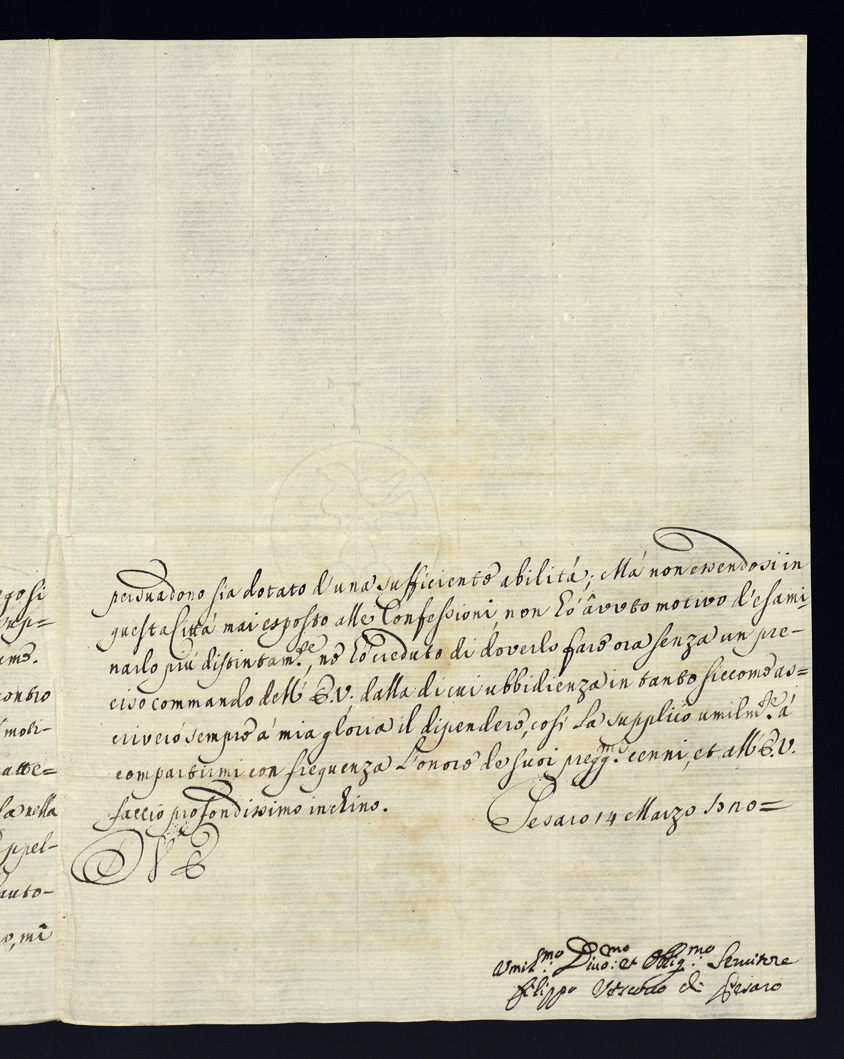 egosi
mp=
ame.
contro
moti-
atte=
la nella
ppel-
auto-
o, mi
persuadono sia dotato d'una sufficiente abilità; Mà non essendosi in
questa Città mai esposto alle Confessioni, non hò àvuto motivo d'esami-
narlo più distintam.te, ne hò creduto di doverlo fare ora senza un pre-
ciso commando dell' E.V. dalla di cui ubbidienza in tanto siccome as=
criverò sempre à mia gloria il dipendere, così la supplico umilm.te à
compartirmi con frequenza l'onore de suoi pregg.mi cenni, et all' E.V.
faccio profondissimo inchino. Pesaro 14 Marzo
Umil.mo Divo:mo et Oblig.mo Servitore
Filippo Vescovo di Pesaro